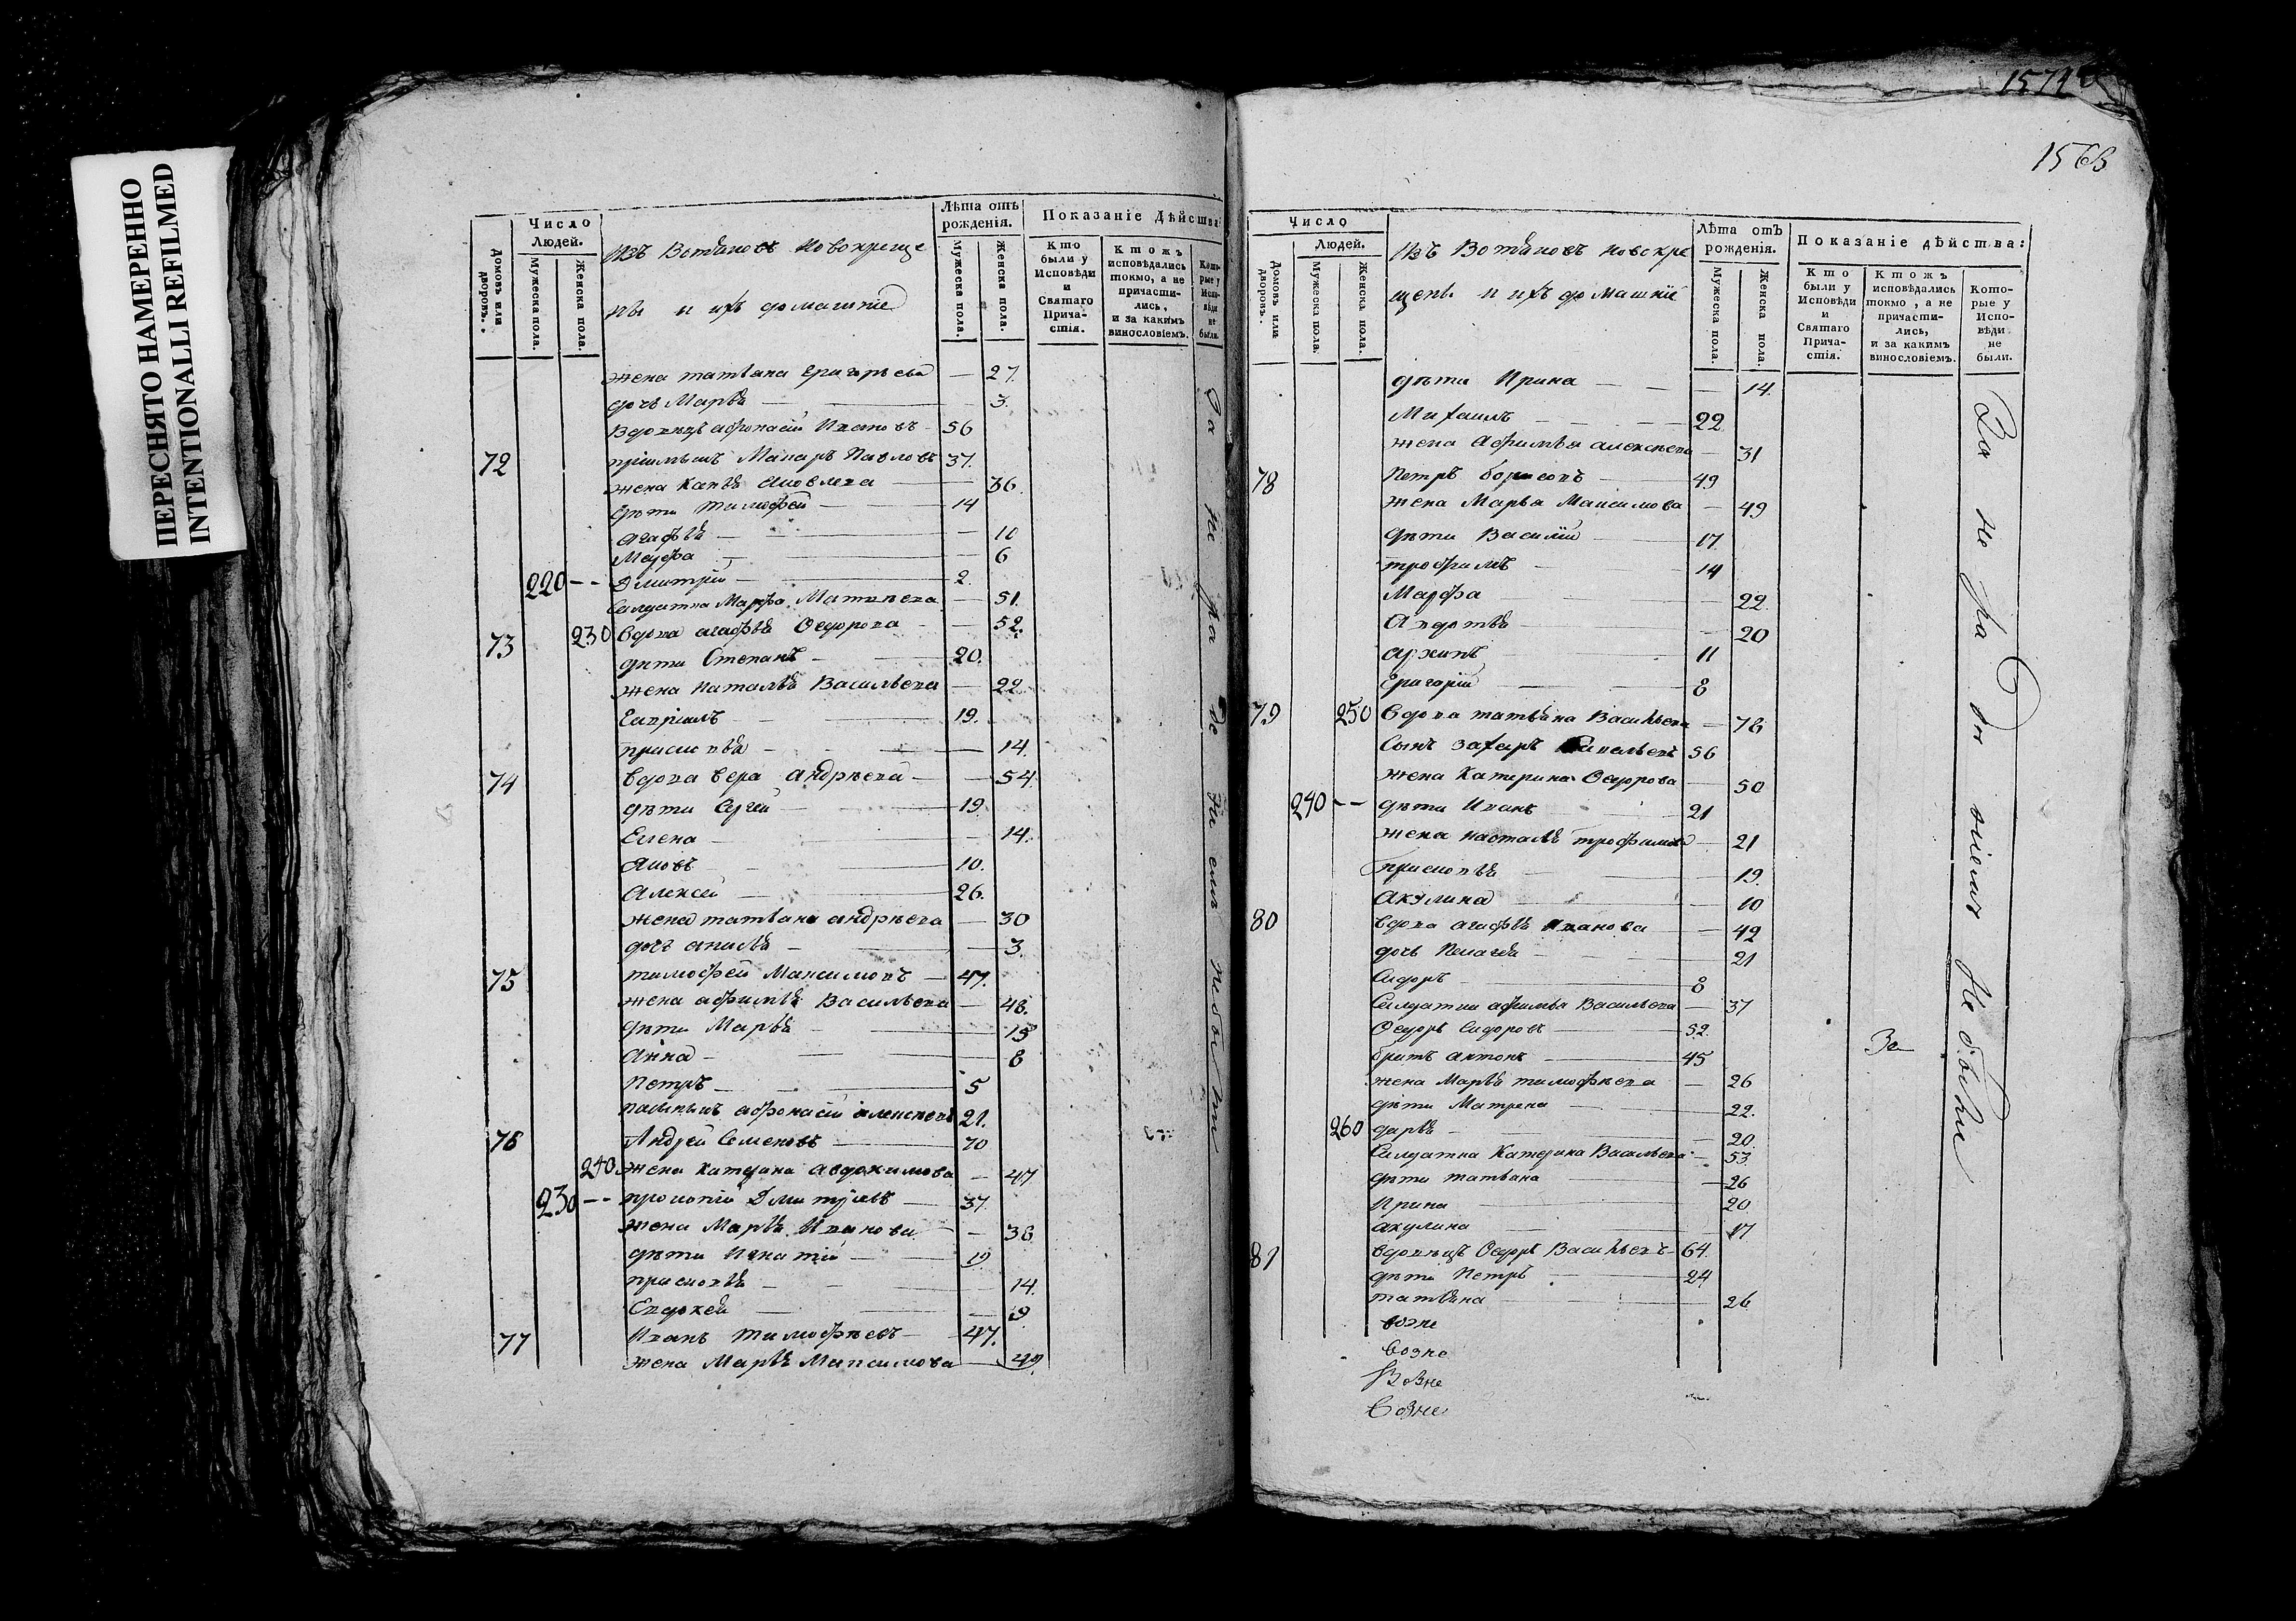 ПЕРЕСНЯТО НАМЕРЕННО
INTENTIONALLI REFILMED
Число
Людей.
Домовъ или дворовъ.
Мужеска пола.
Женска пола.
Изъ Вотяковъ новокреще
ны и ихъ домашніе
Лѣта отъ рожденія.
Мужеска пола.
Женска пола.
Показаніе Дѣйства
Кто были у Исповѣди и Святаго Прича-стія.
Ктожъ исповѣдались токмо, а не причасти-лись, и за какимъ винословіемъ.
Кото-рые у Испо-вѣди не были.
жена татьяна Григорьева — 27.
дочь Марья — 3.
Вдовецъ афонасій Ивановъ 56
72 пріимышъ Макаръ Павловъ 37.
жена Яковлева — 36.
дѣти тимофей — 14
агафья — 10
Марфа — 6
220 -- Дмитрій — 2.
Салдатка Марфа Матвѣева — 51.
73 230 вдова агафья Ѳедорова — 52.
дѣти Степанъ — 20.
жена наталья Васильева — 22
Гавріилъ — 19.
присковья — 14.
74 вдова вера андрѣева — 54
дѣти Сергей — 19
Елена — 14.
Яковъ — 10.
Алексей — 26.
жена татьяна андрѣева — 30
дочь — 3.
75 тимофей Максимовъ — 47.
жена афимья Васильева — 48.
дѣти Марья — 15
анна — 8
Петръ — 5
афонасій алексѣевъ 21.
76 Андрей Семеновъ — 70
240 жена катерина авдокимова — 47
230 -- прокопій Дмитріевъ — 37.
жена Марья Иванова — 38
дѣти Игнатій — 19
присковья — 14.
Евдокея — 9
77 Иванъ тимофѣевъ — 47.
жена Марья Максимова — 49.
1574
1563
Число
Людей.
Домовъ или дворовъ.
Мужеска пола.
Женска пола.
Изъ Вотяковъ новокре
щены и ихъ домашніе
Лѣта отъ рожденія.
Мужеска пола.
Женска пола.
Показаніе дѣйства:
Кто были у Исповѣди и Святаго Прича-стія.
Ктожъ исповѣдались токмо, а не причасти-лись, и за какимъ винословіемъ.
Кото-рые у Испо-вѣди не были.
дѣти Ирина — 14.
Михаилъ — 22
жена Афимья алексѣева — 31
78 Петръ борисовъ — 49
жена Марья Максимова — 49
дѣти Василій — 17
трофимъ — 14
Марфа — 22.
Авдотья — 20
архипъ — 11
Григорій — 8
79 250 вдова татьяна Васильева — 78
Сынъ захаръ 56
жена Катерина Ѳедорова — 50
240 -- дѣти Иванъ — 21
жена насталья трофимова — 21
присковья — 19.
Акулина — 10
80 вдова агафья иванова — 42
дочь Пелагея — 21
Сидоръ — 8
Салдатка афимья Васильева — 37
Ѳедоръ Сидоровъ — 52.
братъ антонъ — 45
жена Марья тимофѣева — 26
дѣти Матрена — 22.
260 дарья — 20.
Салдатка Катерина Васильева — 53.
дѣти татьяна — 26
Ирина — 20
акулина — 17
81 вдовецъ Ѳедоръ Васильевъ — 64.
дѣти Петръ — 24
татьяна — 26
возне
возне
Возне
Возне
За
За не ра дѣ ніемъ не были